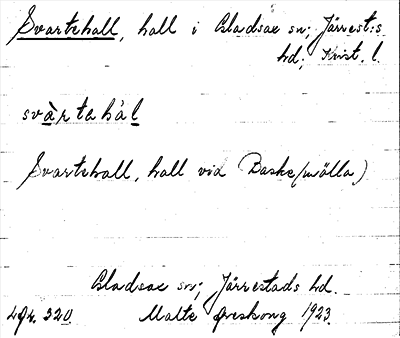 Svartehall, hall i Gladsax sn; Järrest:s
hd; Krist. l.
svàrtahál
Svartehall, hall vid Baske(mölla)
Gladsax sn; Järrestads hd.
Malte Areskoug 1923.